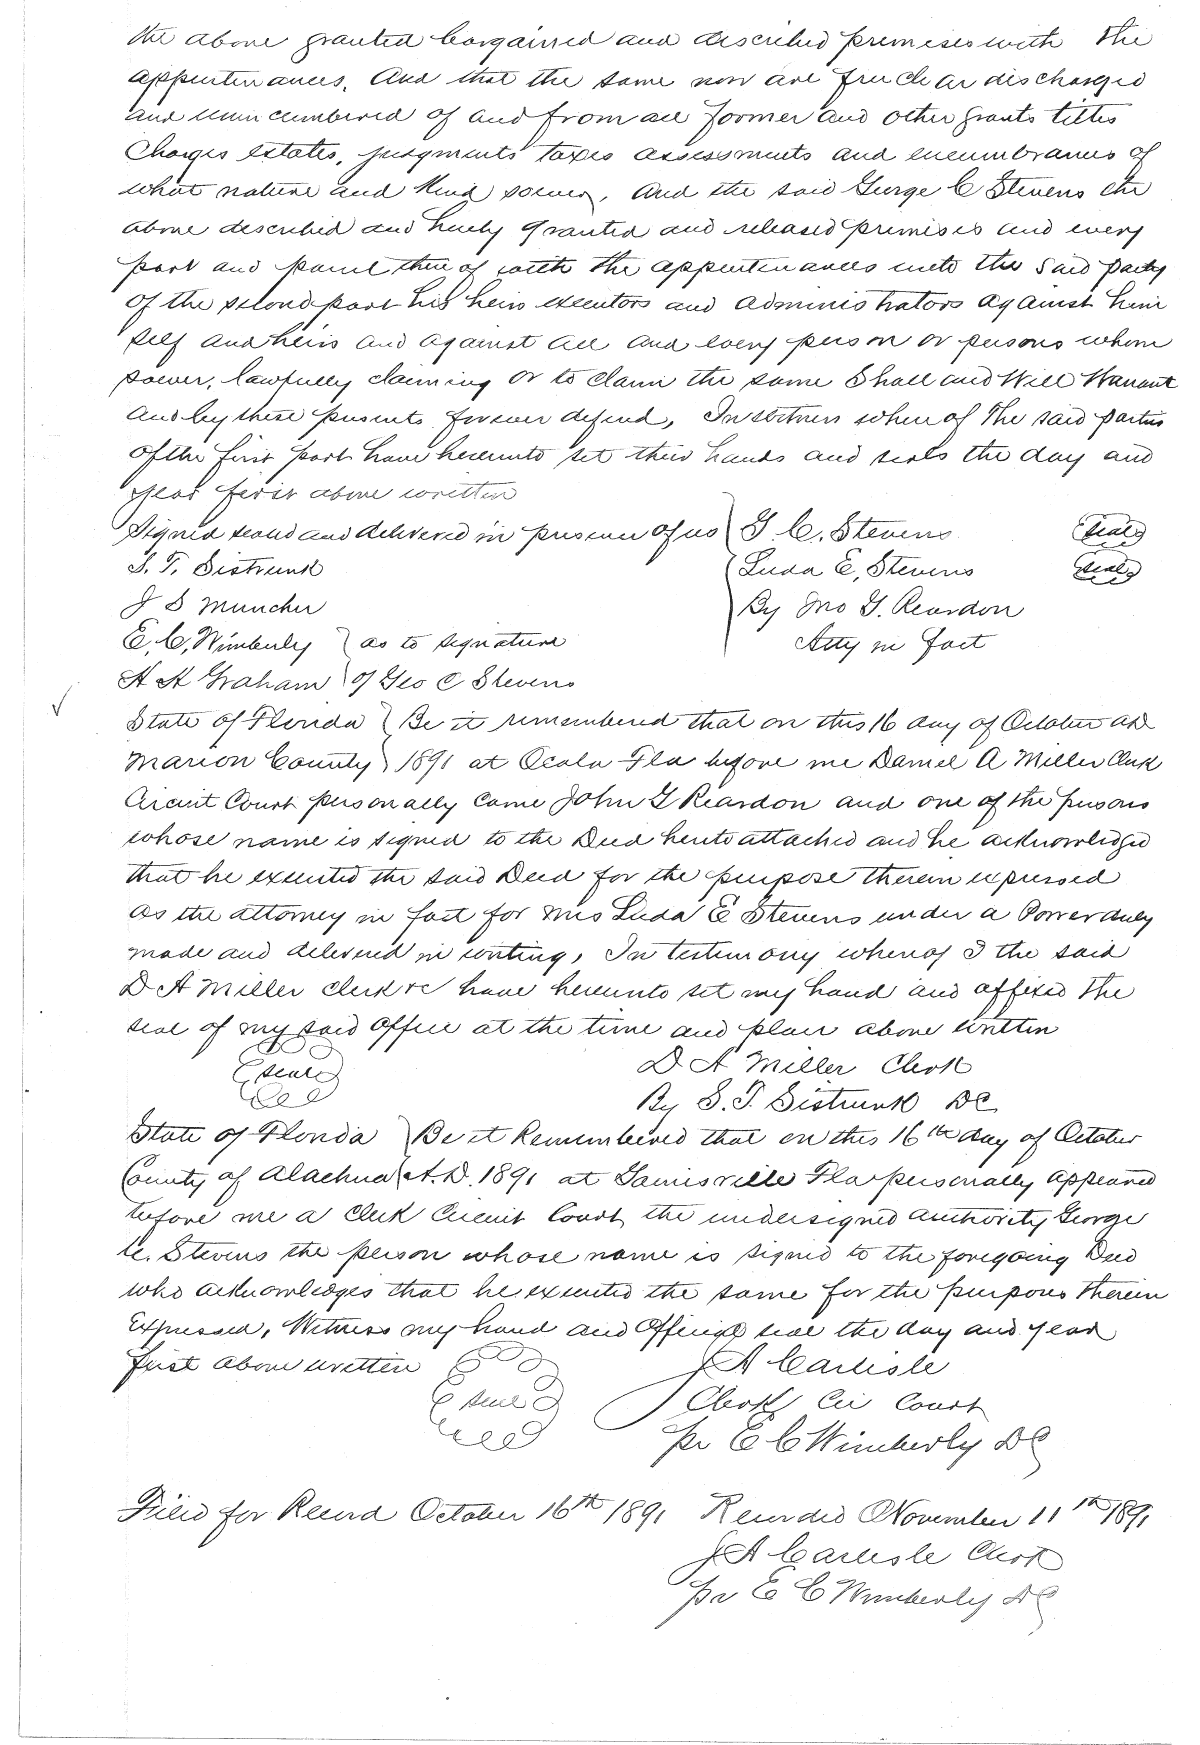 the above granted bargained and described premises with the
appurtenances. And that the same now are free clear discharged
and unincumbered of and from all former and other grants titles
Charges estates, judgments taxes assessments and encumbrances of
what nature and Kind soever, and the said George C Stevens the
above described and hereby granted and released premises and every
part and parcel thereof with the appurtenances unto the said party
of the second part his heirs executors and administrators against him
self and heirs and against all and every person or persons whom
soever, lawfully claiming or to claim the same Shall and Will Warrant
and by these presents forever defend, In witness whereof the said parties
of the first part have hereunto set their hands and seals the day and
year first above written
Signed seald and delivered in presence of us } G. C. Stevens (seal)
S. T. Sistrunk Luda E, Stevens (seal)
J S Muncher By Jno G. Reardon
E. C, Wimberly } as to signature Atty in fact
A A Graham } of Geo C Stevens
State of Florida } Be it remembered that on this 16 day of October AD
Marion County } 1891 at Ocala Fla before me Daniel A Miller Clerk
Circuit Court personally came John G Reardon and one of the persons
whose name is signed to the Deed hereto attached and he acknowledged
that he executed the said Deed for the purpose therein expressed
as the attorney in fact for Mrs Luda E Stevens under a Power duly
made and delivered in writing, In testimony whereof I the said
D A Miller clerk &c have hereunto set my hand and affixed the
seal of my said office at the time and place above written
(seal) D A Miller Clerk
By S. T. Sistrunk DC
State of Florida } Be it Remembered that on this 16th day of October
County of Alachua } A.D. 1891 at Gainesville Fla personally appeared
before me a Clerk Circuit Court the undersigned authority George
C. Stevens the person whose name is signed to the foregoing Deed
who acknowledges that he executed the same for the purposes therein
Expressed, Witness my hand and Official seal the day and year
first above written J A Carlisle
(seal) Clerk Cir Court
pr E C Wimberly DC
Filed for Record October 16th 1891 Recorded November 11th 1891
J A Carlisle Clerk
pr E C Wimberly DC